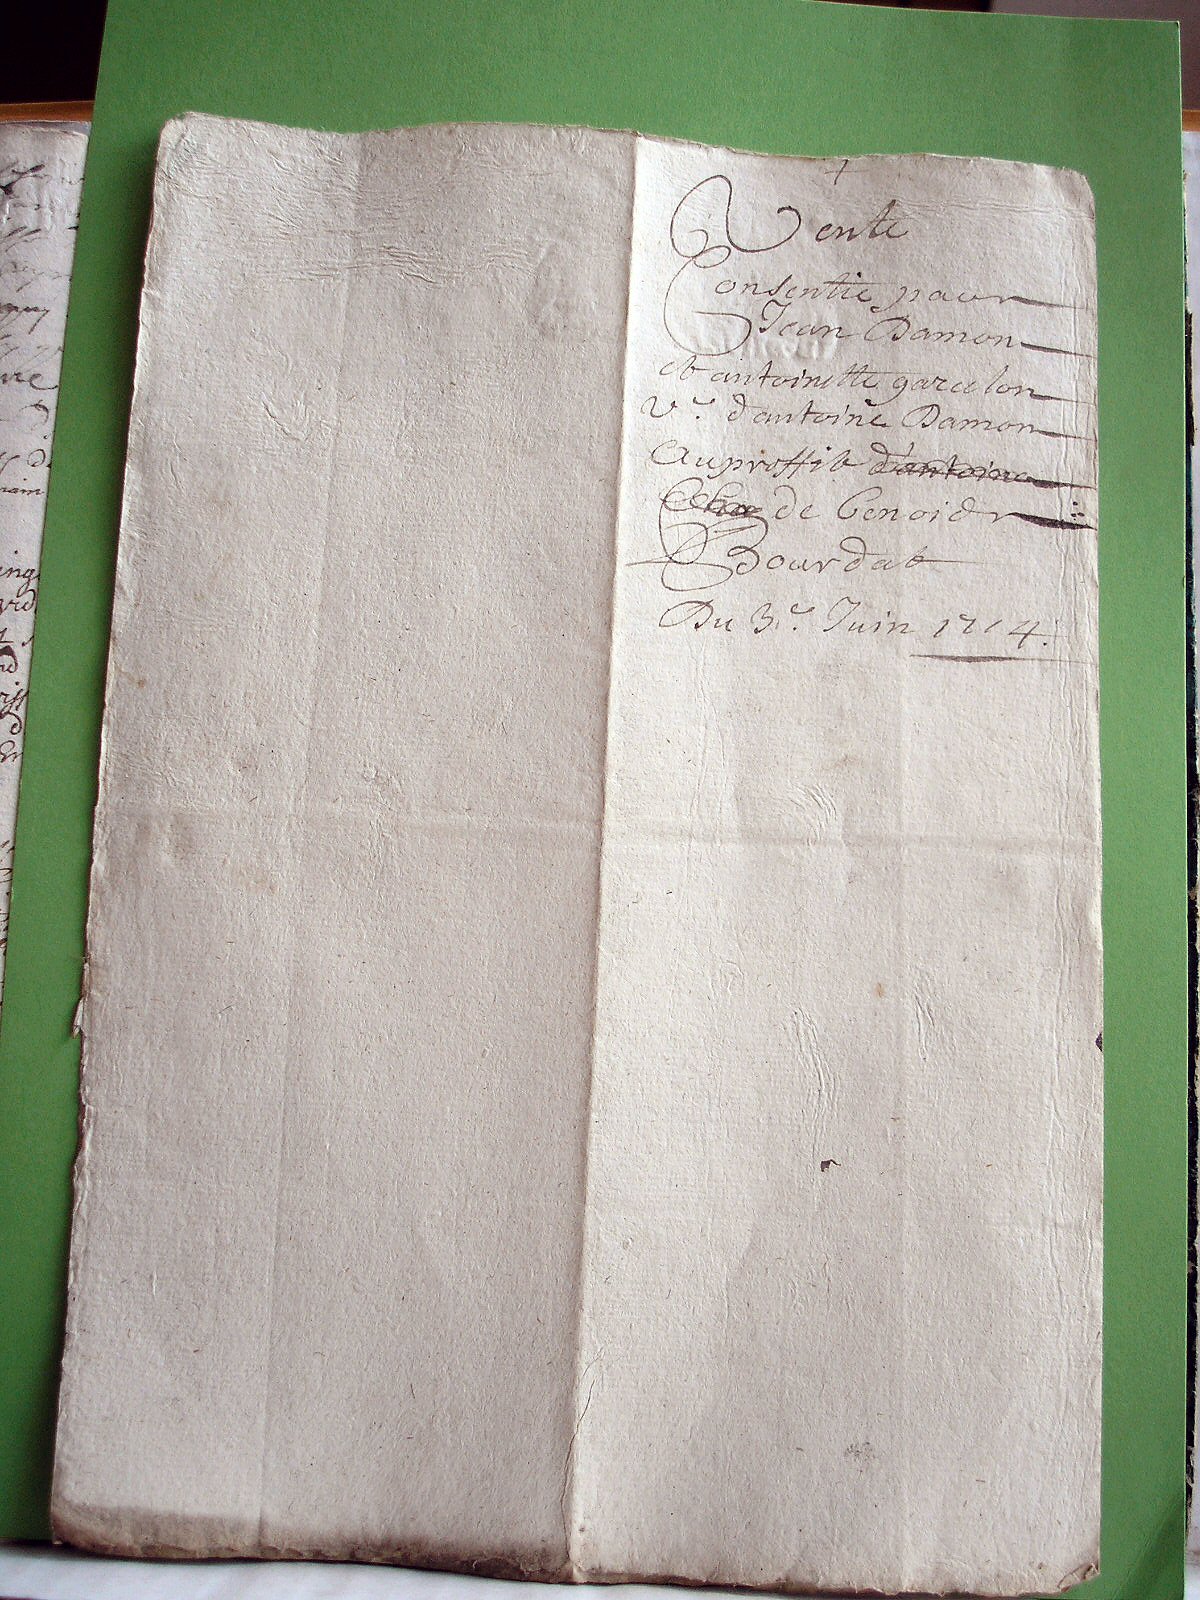 +
Vente
Consentie paur
Jean Damon
et antoinette garcelon
v.e d'antoine Damon
au proffit d'antoine
de Benoidr
Bourdat
Du 3.e Juin 1714.